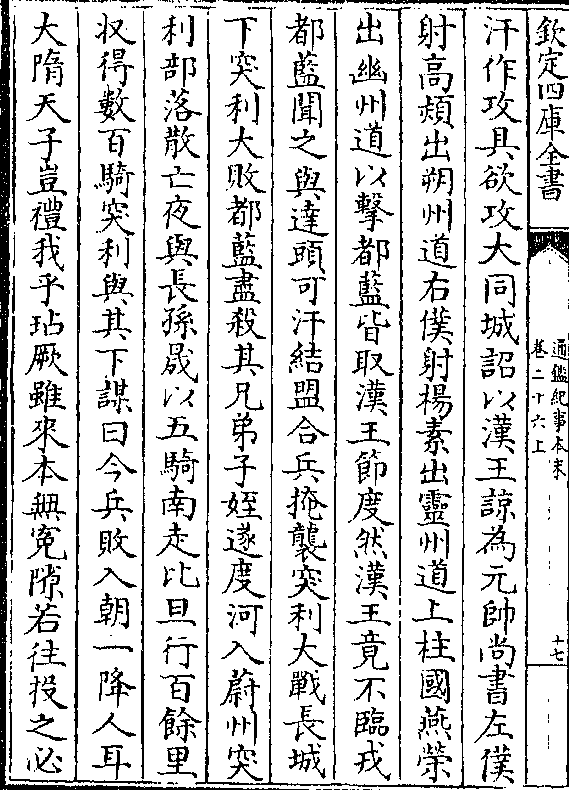 欽定四庫全書
通鑑紀事本末
卷二十六上
十七
汗作攻具欲攻大同城詔以漢王諒為元帥尚書左僕
射高熲出朔州道右僕射楊素出靈州道上柱國燕榮
出幽州道以擊都藍皆取漢王節度然漢王竟不臨戎
都藍聞之與達頭可汗結盟合兵掩襲突利大戰長城
下突利大敗都藍盡殺其兄弟子姪遂度河入蔚州突
利部落散亡夜與長孫晟以五騎南走比旦行百餘里
収得數百騎突利與其下謀曰今兵敗入朝一降人耳
大隋天子豈禮我乎玷厥雖來本無寃隙若往投之必